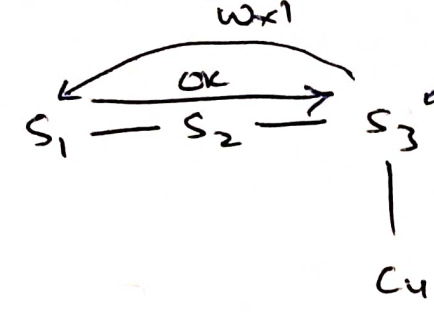 Wx1
OK
S1 — S2 — S3
C4